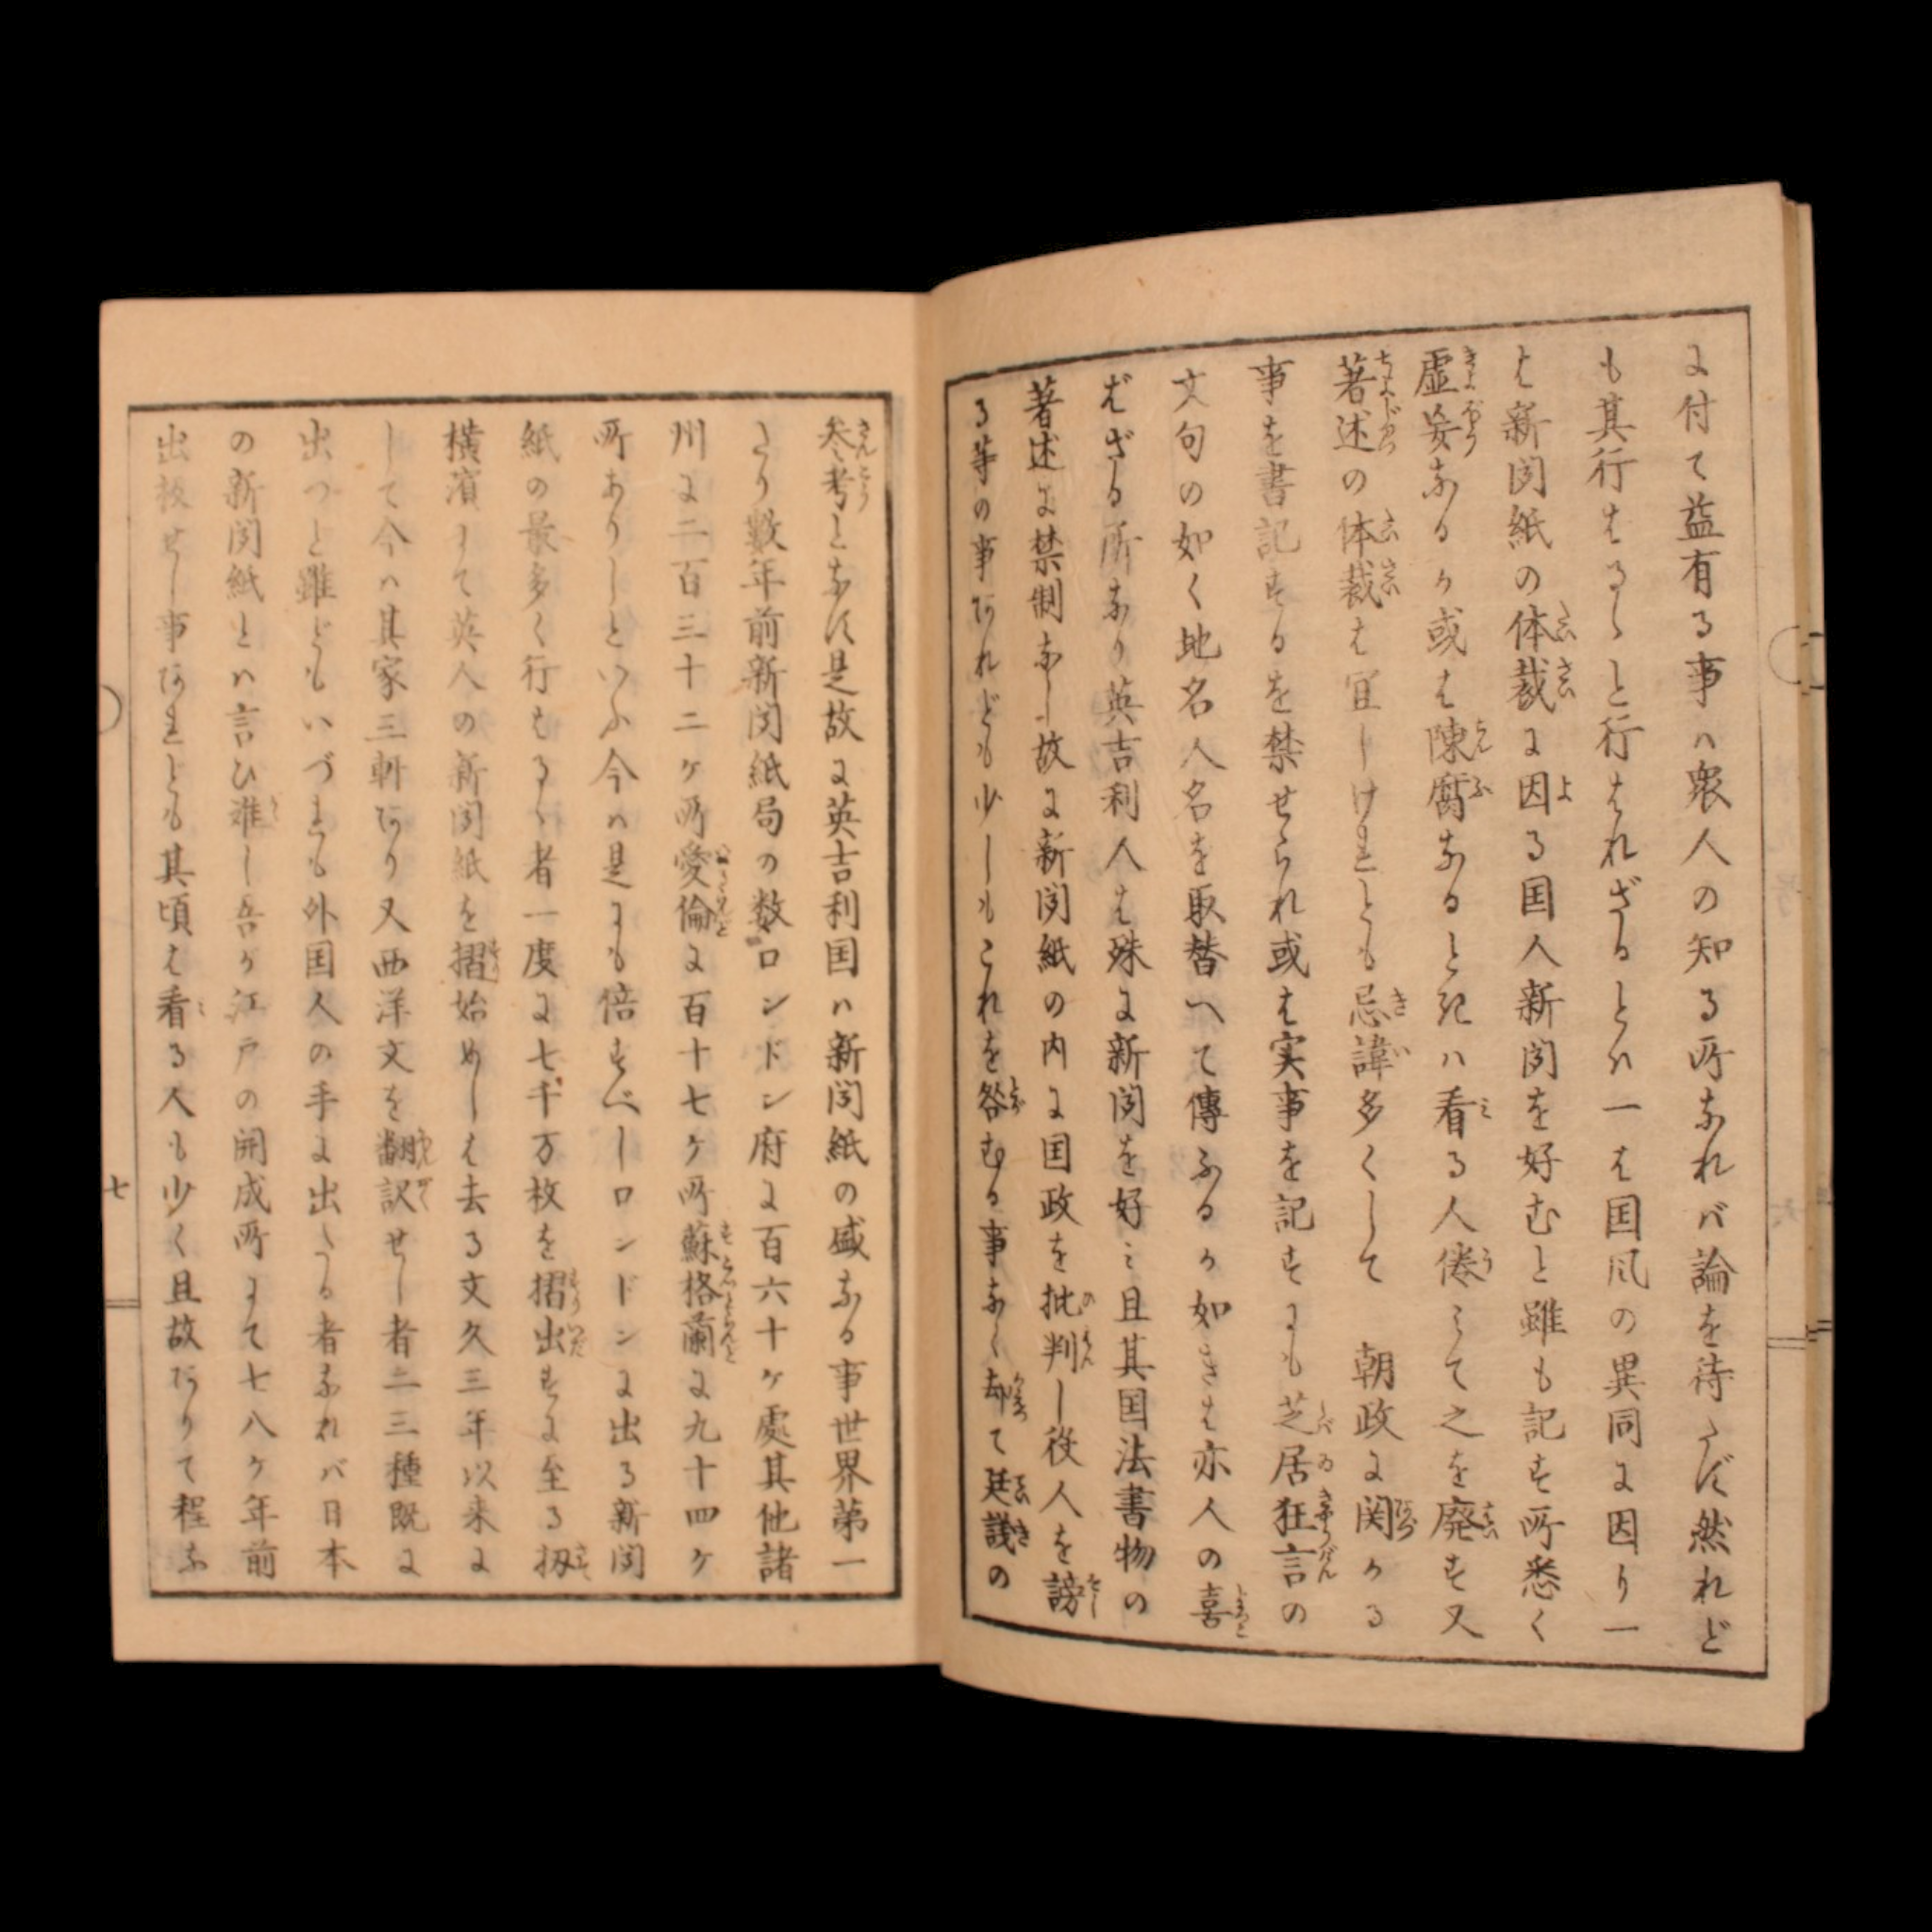 に付て益有る事ハ衆人の知る所なれバ論を待たず然れど
も其行はるゝと行はれざるとハ一は国風の異同に因り一
は新聞紙の体裁に因る国人新聞を好むと雖も記す所悉く
虚妄なるか或は陳腐なるときハ看る人倦ミて之を廃す又
著述の体裁は宜しけれとも忌諱多くして 朝政に関かる
事を書記するを禁せられ或は実事を記すにも芝居狂言の
文句の如く地名人名を取替へて傳ふるか如きは亦人の喜
ばざる所なり英吉利人は殊に新聞を好ミ且其国法書物の
著述に禁制なし故に新聞紙の内に国政を批判し役人を謗
る等の事あれども少しもこれを咎むる事なく却て廷議の
参考となす是故に英吉利国ハ新聞紙の盛なる事世界第一
たり数年前新聞紙局の数ロンドン府に百六十ヶ處其他諸
州に二百三十二ヶ所愛倫に百十七ヶ所蘇格蘭に九十四ヶ
所ありしといふ今ハ是にも倍すべしロンドンに出る新聞
紙の最多く行もるゝ者一度に七千万枚を摺出すに至る扨
横濱にて英人の新聞紙を摺始めしは去る文久三年以来に
して今ハ其家三軒あり又西洋文を翻訳せし者二三種既に
出つと雖どもいづれも外国人の手に出たる者なれバ日本
の新聞紙とハ言ひ難し吾か江戸の開成所にて七八ヶ年前
出板せし事あれとも其頃は看る人も少く且故ありて程な
七